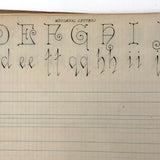 MEDIEVAL LETTERS
D E F G H I
d ee ff gg hh ii j